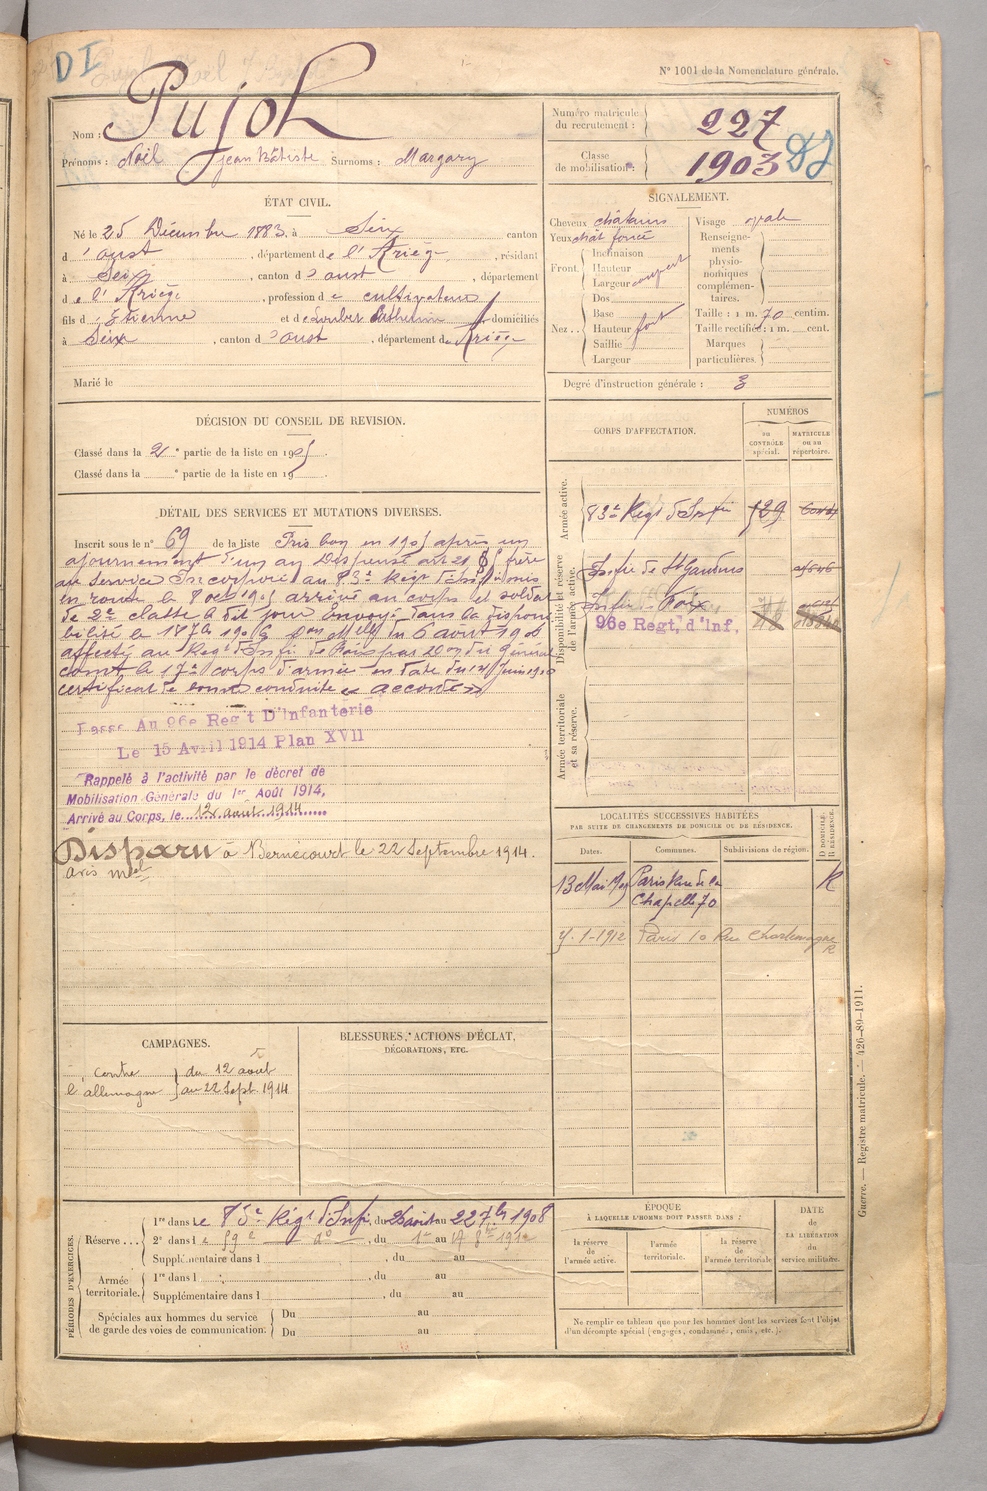 DI
N° 1001 de la Nomenclature générale.
Nom : Pujol
Prénoms : Noël Jean Bâtiste Surnoms : Margary
Numéro matricule du recrutement : 227
Classe de mobilisation : 1903
ÉTAT CIVIL.
Né le 25 Décembre 1883, à Seix canton
d'oust, département de l'Ariège, résidant
à Seix, canton d'oust, département
de l'Ariège, profession de cultivateur
fils d'Etienne et de Loubet Catherine domiciliés
à Seix, canton d'oust, département de Ariège
Marié le
SIGNALEMENT.
Cheveux châtains
Yeux chât foncé
Front. Inclinaison
Hauteur
Largeur
Nez... Dos
Base
Hauteur fort
Saillie
Largeur
Visage ovale
Renseignements physionomiques complémentaires.
Taille : 1 m. 70 centim.
Taille rectifiée : 1 m. cent.
Marques particulières.
Degré d'instruction générale : 3
DÉCISION DU CONSEIL DE REVISION.
Classé dans la 2e partie de la liste en 1905.
Classé dans la e partie de la liste en 19 .
CORPS D'AFFECTATION.
NUMÉROS
au CONTRÔLE spécial.
MATRICULE ou au répertoire.
Armée active.
83e Régt d'Infie 529
Disponibilité et réserve de l'armée active.
Infie de St Gaudens
Infie Foix
96e Regt, d'Inf.
Armée territoriale et sa réserve.
DÉTAIL DES SERVICES ET MUTATIONS DIVERSES.
Inscrit sous le n° 69 de la liste Pris bon en 1905 après un
ajournement d'un an Dispensé art 21 § frère
au service Incorporé au 83e Régt d'Infie mis
en route le 8 oct 1905 arrivé au corps et soldat
de 2e classe le dit jour Envoyé dans la disponi
bilité le 18 7bre 1906
affecté au Regt d'Infie de Foix par Don du Général
comt le 17e corps d'armée en date du
certificat de bonne conduite « accordé »
Passé Au 96e Reg't D'Infanterie
Le 15 Avril 1914 Plan XVII
Rappelé à l'activité par le décret de
Mobilisation Générale du 1er Août 1914,
Arrivé au Corps, le 12 août 1914
Disparu à Bernécourt le 22 Septembre 1914.
avis mel
LOCALITÉS SUCCESSIVES HABITÉES
PAR SUITE DE CHANGEMENTS DE DOMICILE OU DE RÉSIDENCE.
Dates. Communes. Subdivisions de région. D DOMICILE. R RÉSIDENCE.
13 Mai Paris Rue de la Chapelle 70 R
1-1912 Paris 10 Rue Charlemagne R
CAMPAGNES.
Contre l'allemagne du 12 août au 22 Sept. 1914
BLESSURES, ACTIONS D'ÉCLAT,
DÉCORATIONS, ETC.
PÉRIODES D'EXERCICES.
Réserve... 1re dans le 83e Régt d'Infie, du 26 août au 22 7bre 1908
2e dans le 59e do, du 1er au 17 8bre 1912
Supplémentaire dans l , du au
Armée territoriale. 1re dans l , du au
Supplémentaire dans l , du au
Spéciales aux hommes du service de garde des voies de communication: Du au
Du au
ÉPOQUE
À LAQUELLE L'HOMME DOIT PASSER DANS :
la réserve de l'armée active.
l'armée territoriale.
la réserve de l'armée territoriale
DATE de LA LIBÉRATION du service militaire.
Ne remplir ce tableau que pour les hommes dont les services font l'objet
d'un décompte spécial (engagés, condamnés, omis, etc.).
Guerre. — Registre matricule. — 426-89-1911.